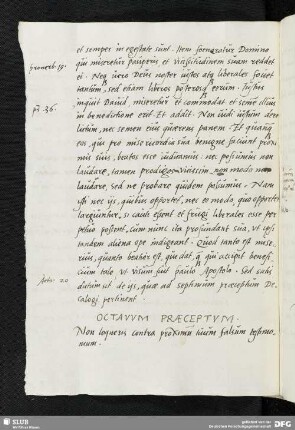 et semper in egestate sunt. Item foeneratur Domino
proverb 19.
qui miseretur pauperis et vicissitudinem suam reddet
ei. Neq vero Deus noster iustos et liberales fovet
tantum, sed etiam liberos posterosq eorum. Iustus
ps. 36.
inquit David, miseretur et commodat et semen illius
in benedictione erit. Et addit. Non vidi iustum dere
lictum, nec semen eius quaerens panem. Et quanq
eos, qui pro misericordia sua benigne faciunt proxi
mis suis, beatos esse iudicamus: nec possumus non
laudare, tamen prodigos vicissim non modo non
laudare, sed ne probare quidem possumus. Nam
si nec ijs, quibus oportet, nec eo modo, quo oportet
largiuntur, si caute egerint et frugi liberales esse per
petuo possent, cum nunc ita profundant sua, ut tan
tandem aliena ope indigeant. Quod tanto est mise
rius, quanto beatior est, qui dat, q qui accipit benefi
Acto: 20
cium tale ut visum fuit paulo Apostolo. Sed satis
dictum sit de ijs, quae ad septimum praeceptum De
calogi pertinent.
OCTAVUM PRAECEPTUM.
Non loqueris contra proximum tuum falsum testimo
nium.
SLUB
Wir führen Wissen.
DFG